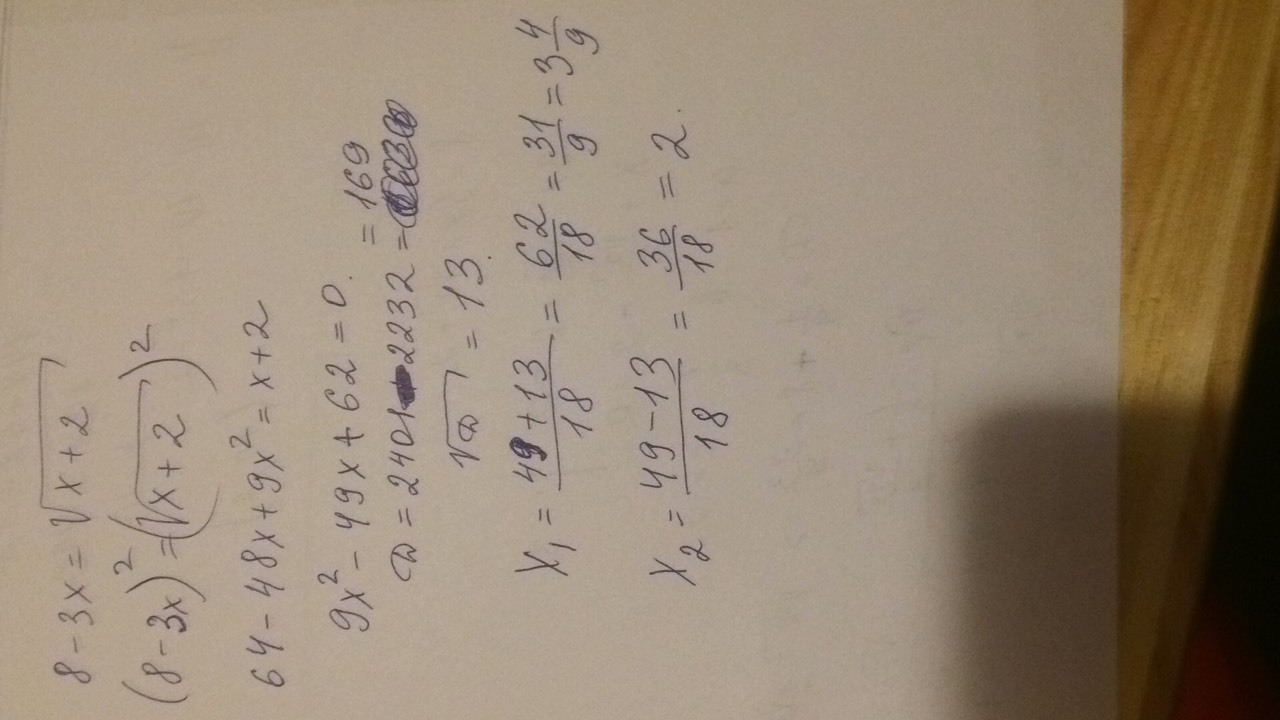 8 - 3x = √(x + 2)
(8 - 3x)² = (√(x + 2))²
64 - 48x + 9x² = x + 2
9x² - 49x + 62 = 0.
D = 2401 - 2232 = 169
√D = 13.
x₁ = (49 + 13)/18 = 62/18 = 31/9 = 3 4/9
x₂ = (49 - 13)/18 = 36/18 = 2.